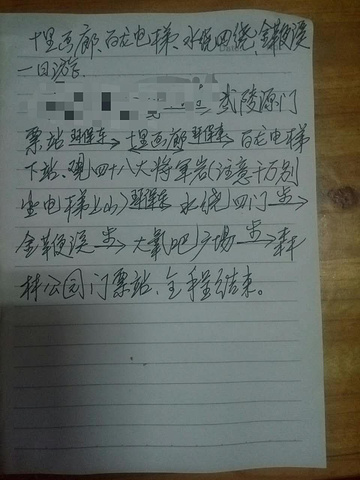 十里画廊、百龙电梯、水绕四绕、金鞭溪
一日游.
武陵源门
票站 环保车→ 十里画廊 环保车→ 百龙电梯
下站、观四十八大将军岩(注意千万别
坐电梯上山) 环保车→ 水绕四门 步→
金鞭溪 步→ 大氧吧广场 步→ 森
林公园门票站、全程结束。